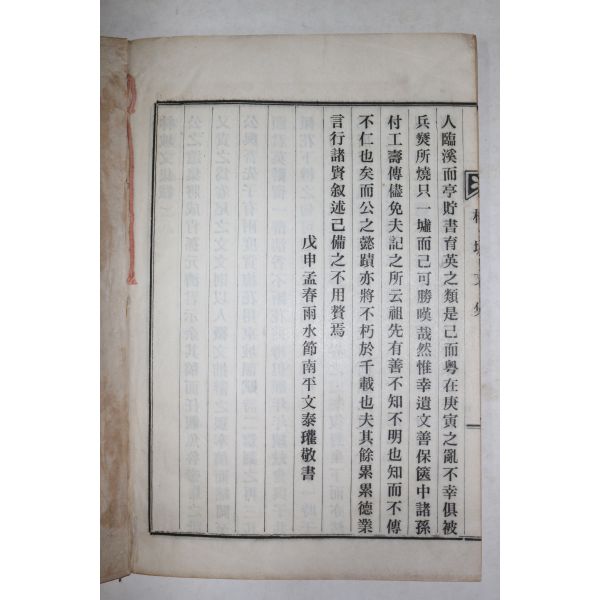 人臨溪而亭貯書育英之類是已而粤在庚寅之亂不幸俱被
兵燹所燒只一墟而已可勝嘆哉然惟幸遺文善保篋中諸孫
付工壽傳儘免夫記之所云祖先有善不知不明也知而不傳
不仁也矣而公之懿蹟亦將不朽於千載也夫其餘累累德業
言行諸賢叙述己備之不用贅焉
戊申孟春雨水節南平文泰瓘敬書